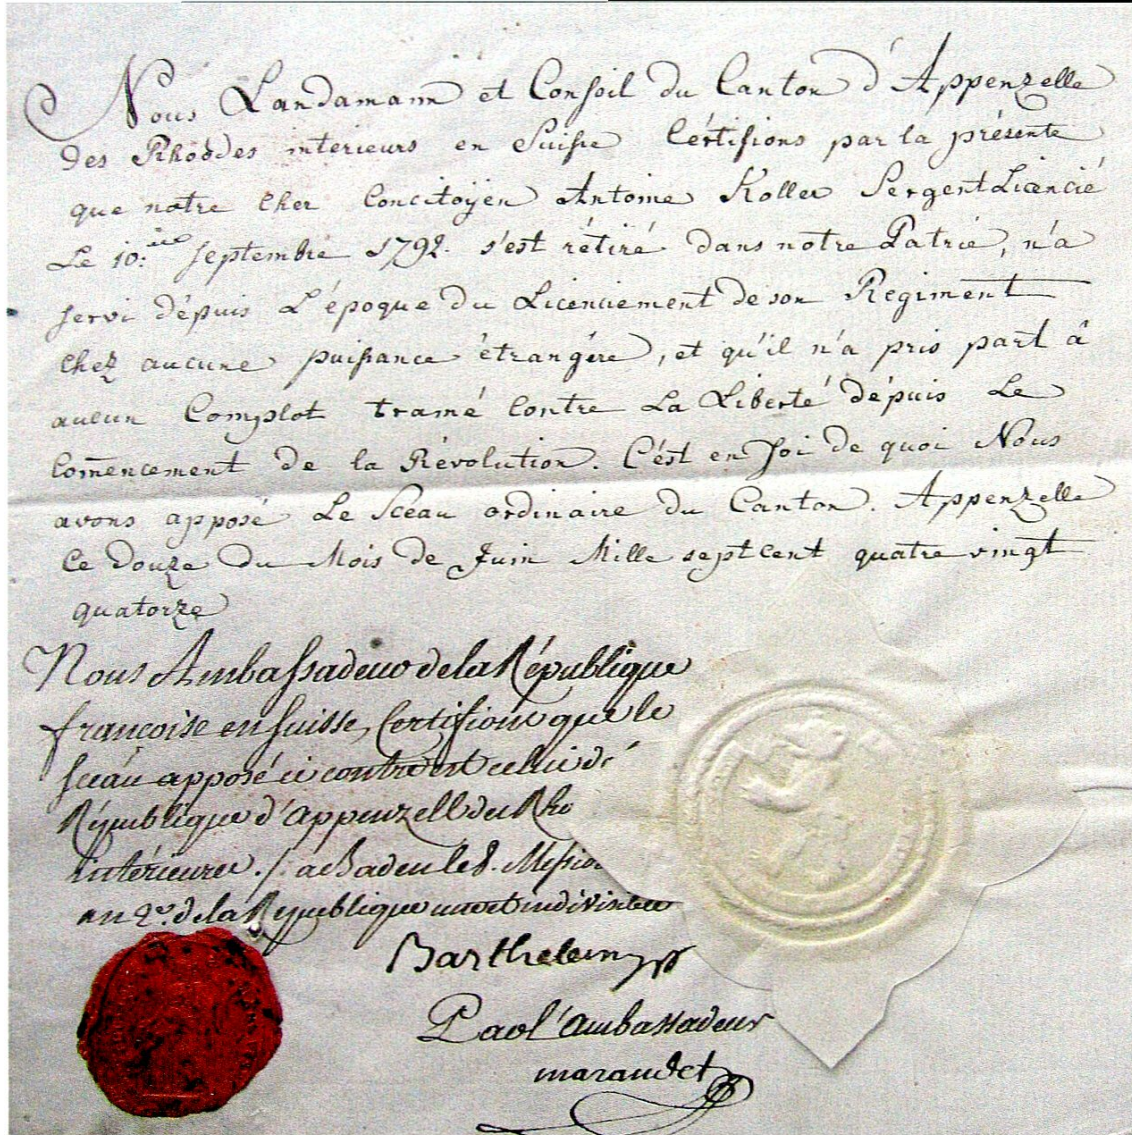 Nous Landamann et Conseil du Canton d'Appenzelle
des Rhoddes interieurs en Suisse Cértifions par la présente
que notre cher Concitoÿen Antoine Koller Sergent Licencié
Le 10.ième Septembre 1792. s'est rétiré dans notre Patrie, n'a
servi dépuis L'époque du Licenciement de son Regiment
chez aucune puissance étrangére, et qu'il n'a pris part â
aucun Complot tramé contre La Liberté dépuis Le
com̅encement de la Révolution. C'ést en foi de quoi Nous
avons apposé Le Sceau ordinaire du Canton. Appenzelle
Ce douze du Mois de Juin Mille sept cent quatre vingt
quatorze
Nous Ambassadeur de la République
françoise en Suisse, Certifions que le
Sceau apposé ci contre est celui dé
République d'Appenzell des Rho
intérieures ./. à Baden le 8. Messid
an 2e. de la République une et indivisible
Barthelemy
Par l'Ambassadeur
marandet